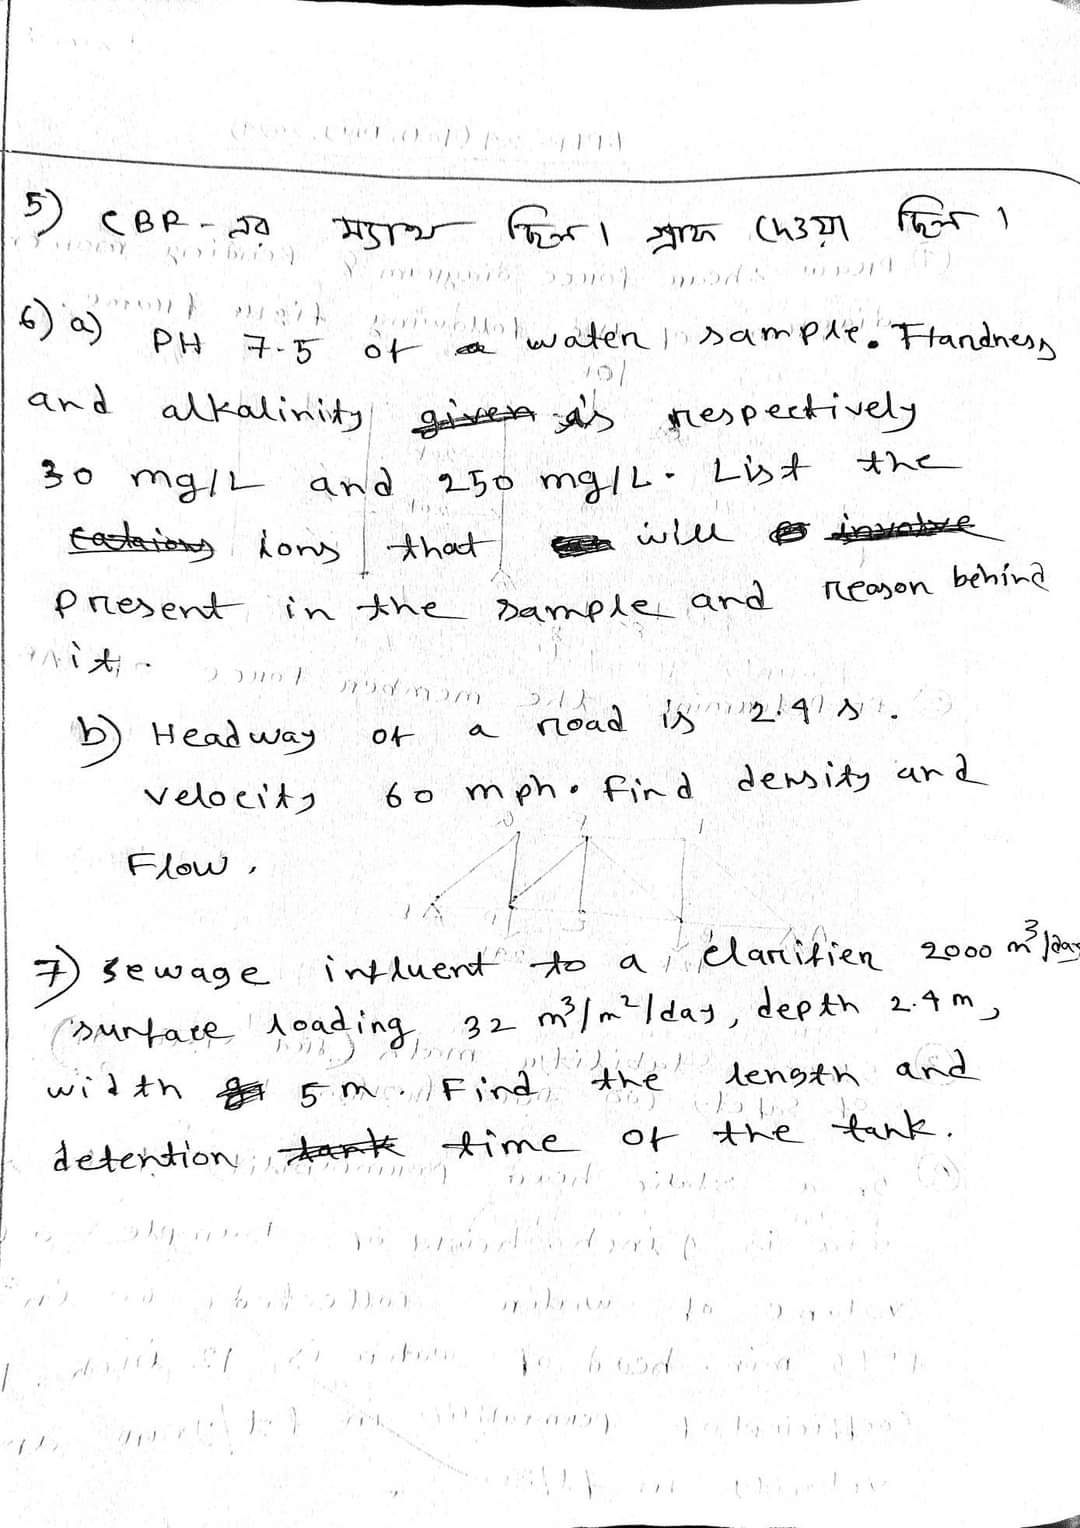 5) CBR-এর ম্যাথ ছিল। গ্রাফ দেওয়া ছিল।
6) a) PH 7.5 of water sample. Hardness
and alkalinity is respectively
30 mg/L and 250 mg/L. List the
ions that will
present in the sample and reason behind
it.
b) Headway of a road is 2.4 s.
velocity 60 mph. Find density and
Flow.
7) sewage influent to a clarifier 2000 m³/day
surface loading 32 m³/m²/day, depth 2.4 m,
width 5 m. Find the length and
detention time of the tank.